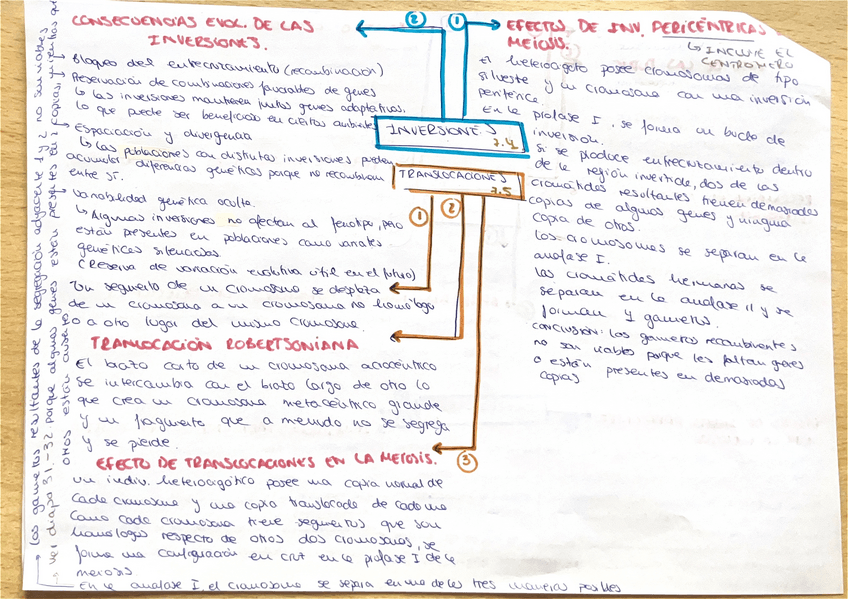 CONSECUENCIAS EVOL. DE LAS
INVERSIONES.
Bloqueo del entrecruzamiento (recombinación)
Preservación de combinaciones favorables de genes
↳ las inversiones mantienen juntos genes adaptativos.
lo que puede ser beneficioso en ciertos ambientes
Especiación y divergencia
↳ Las poblaciones con distintas inversiones pueden
acumular diferencias genéticas porque no recombinan
entre sí.
Variabilidad genética oculta.
↳ Algunas inversiones no afectan al fenotipo, pero
están presentes en poblaciones como variantes
genéticas silenciadas.
(Reserva de variación evolutiva útil en el futuro)
② ①
INVERSIONES
7.4
TRANSLOCACIONES
7.5
① ②
Un segmento de un cromosoma se desplaza
de un cromosoma a un cromosoma no homólogo
o a otro lugar del mismo cromosoma.
TRANSLOCACIÓN ROBERTSONIANA
El brazo corto de un cromosoma acrocéntrico
se intercambia con el brazo largo de otro lo
que crea un cromosoma metacéntrico grande
y un fragmento que a menudo no se segrega
y se pierde.
③
EFECTO DE TRANSLOCACIONES EN LA MEIOSIS.
Un indiv. heterocigótico posee una copia normal de
cada cromosoma y una copia translocada de cada uno
Como cada cromosoma tiene segmentos que son
homólogos respecto de otros dos cromosomas, se
forma una configuración en cruz en la profase I de la
meiosis
En la anafase I, el cromosoma se separa en una de las tres maneras posibles
→ Los gametos resultantes de la segregación adyacente 1 y 2 no son viables
porque algunos genes están presentes en 2 copias, mientras que
otros están ausentes
→ ver diapo 31.-32.
EFECTOS DE INV. PERICÉNTRICAS
MEIOSIS.
↳ INCLUYE EL
CENTRÓMERO
El heterocigoto posee cromosomas de tipo
silvestre y un cromosoma con una inversión
En la profase I, se forma un bucle de
inversión.
Si se produce entrecruzamiento dentro
de la región invertida, dos de las
cromátides resultantes tienen demasiadas
copias de algunos genes y ninguna
copia de otros.
Los cromosomas se separan en la
anafase I.
Las cromátides hermanas se
separan en la anafase II y se
forman 4 gametos.
CONCLUSIÓN: Los gametos recombinantes
no son viables porque les faltan genes
o están presentes en demasiadas
copias